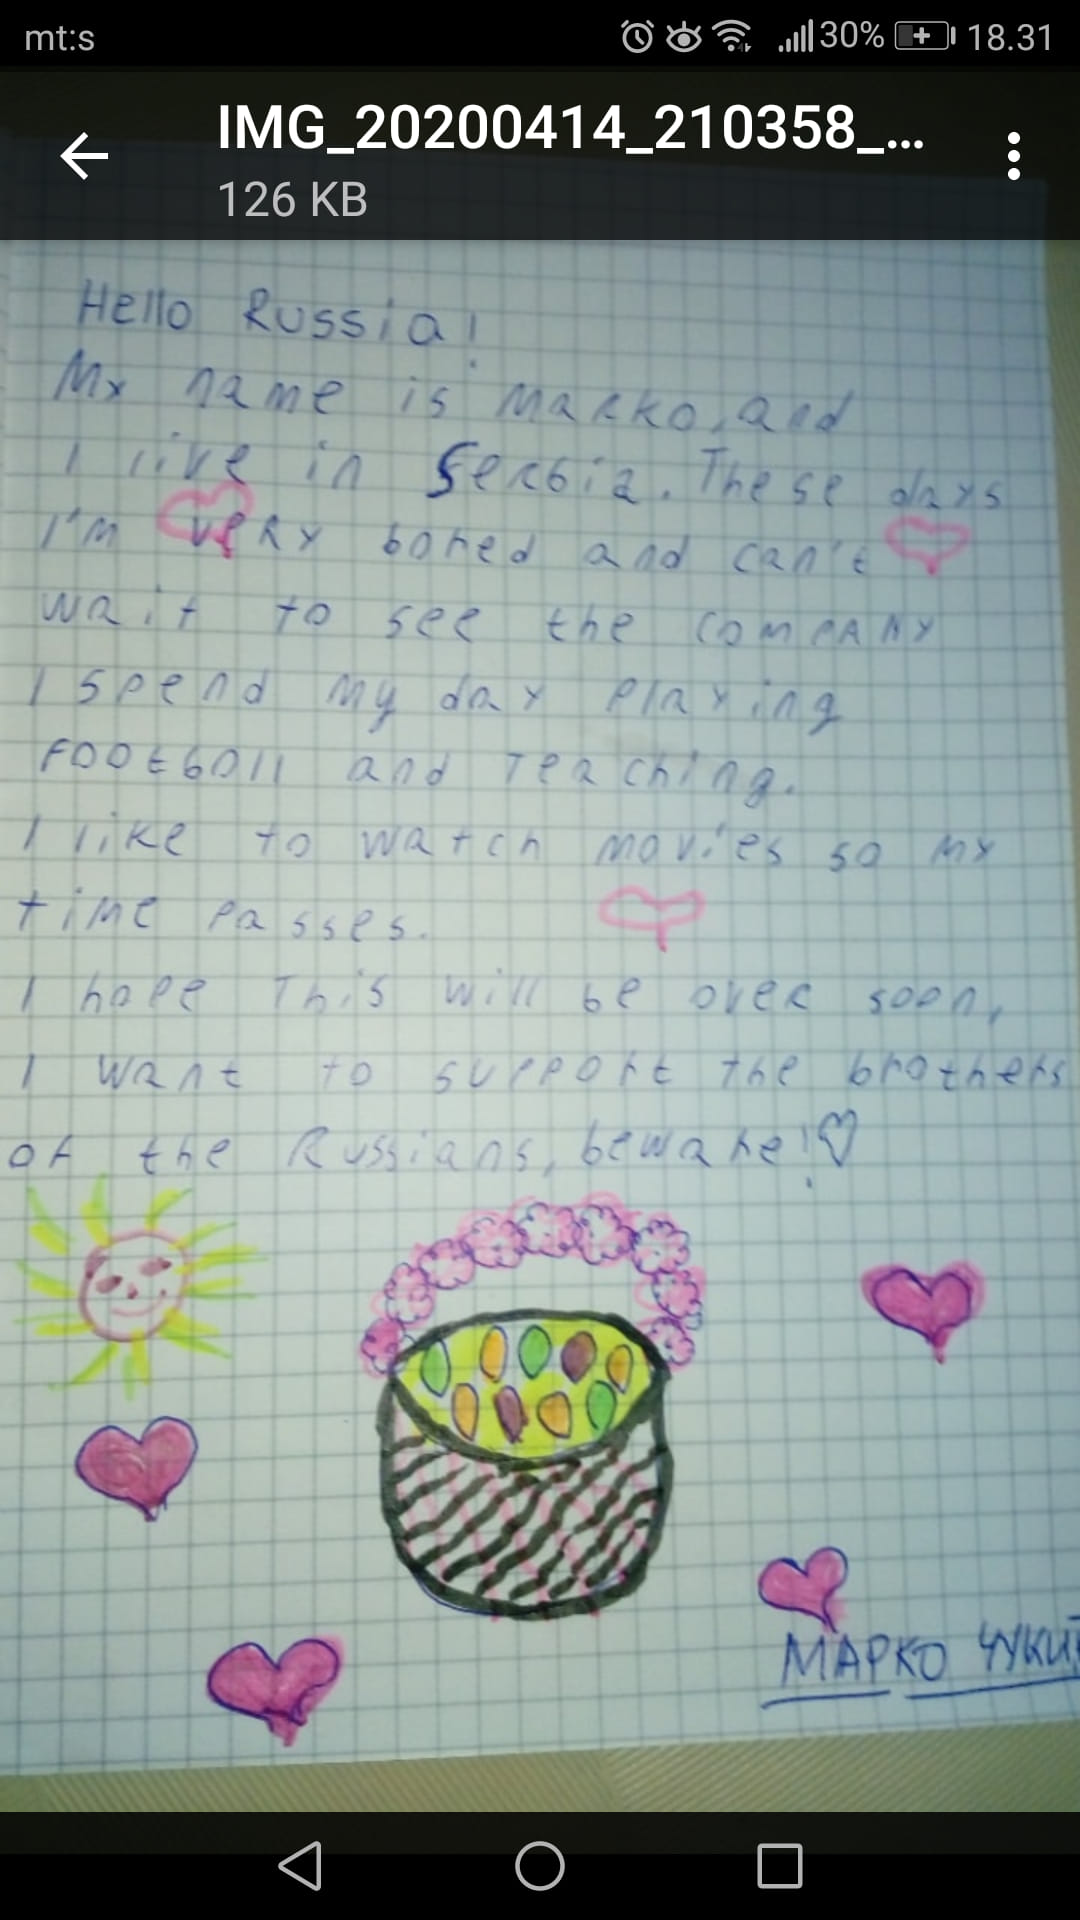 mt:s 30% 18.31
IMG_20200414_210358_...
126 KB
Hello Russia!
My name is Marko, and
I live in Serbia. These days
I'm very bored and can't
wait to see the company
I spend my day playing
Footboll and Teaching.
I like to watch movies so my
time passes.
I hope This will be over soon,
I want to support the brothers
of the Russians, beware!
МАРКО